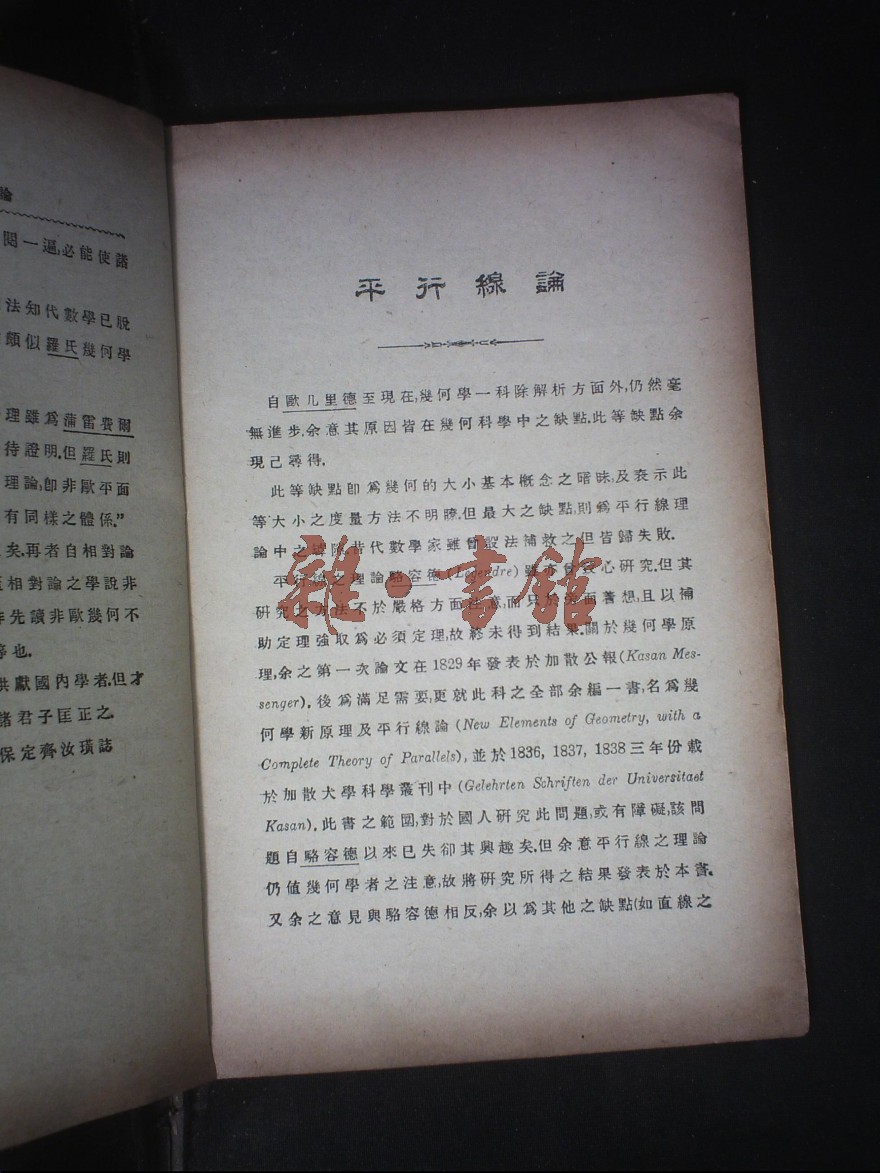 論
閱一遍,必能使諸
法知代數學已脫
頗似羅氏幾何學
理雖爲蒲雷費爾
待證明.但羅氏則
理論,卽非歐平面
有同樣之體係.”
矣.再者自相對論
相對論之學說非
非先讀非歐幾何不
等也.
供獻國內學者.但才
諸君子匡正之.
保定齊汝璜誌
平行線論
自歐几里德至現在,幾何學一科除解析方面外,仍然毫
無進步.余意其原因皆在幾何科學中之缺點.此等缺點余
現已尋得.
此等缺點卽爲幾何的大小基本槪念之暗昧,及表示此
等大小之度量方法不明瞭.但最大之缺點,則爲平行線理
論中之缺陷.昔代數學家雖曾設法補救之但皆歸失敗.
平行線之理論駱容德(Legendre)雖亦曾衷心研究.但其
研究之方法不於嚴格方面注意,而只於方面著想,且以補
助定理強取爲必須定理,故終未得到結果.關於幾何學原
理,余之第一次論文在1829年發表於加散公報(Kasan Mes-
senger), 後爲滿足需要,更就此科之全部余編一書,名爲幾
何學新原理及平行線論(New Elements of Geometry, with a
Complete Theory of Parallels), 並於1836, 1837, 1838三年份載
於加散大學科學叢刊中(Gelehrten Schriften der Universitaet
Kasan). 此書之範圍,對於國人硏究此問題,或有障礙,該問
題自駱容德以來已失卻其興趣矣.但余意平行線之理論
仍値幾何學者之注意,故將研究所得之結果發表於本書.
又余之意見與駱容德相反,余以爲其他之缺點(如直線之
雜·書館